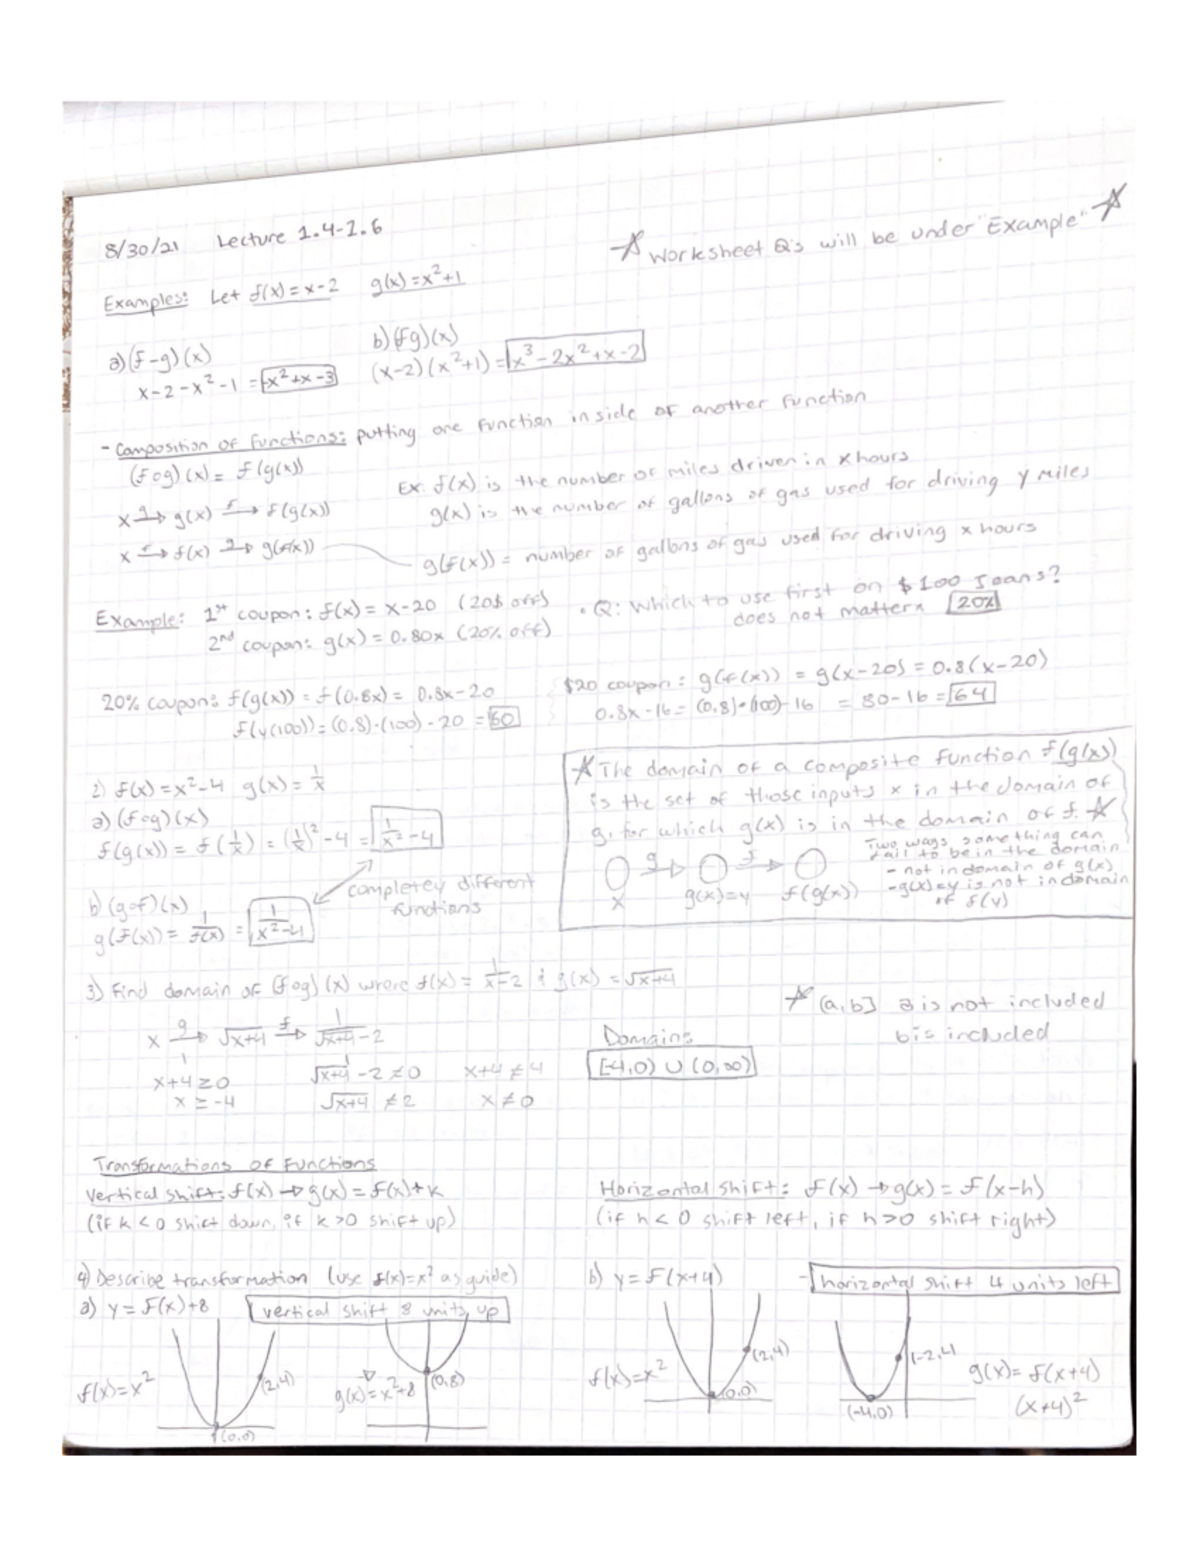 8/30/21 Lecture 1.4-1.6
☆ Worksheet Q's will be under "Example" ☆
Examples: Let f(x) = x-2 g(x) = x²+1
a) (f-g)(x)
x-2-x²-1 = -x²+x-3
b) (fg)(x)
(x-2)(x²+1) = x³-2x²+x-2
- Composition of functions: putting one function inside of another function
(f∘g)(x) = f(g(x))
x →g g(x) →f f(g(x))
x →f f(x) →g g(f(x))
Ex: f(x) is the number of miles driven in x hours
g(x) is the number of gallons of gas used for driving y miles
g(f(x)) = number of gallons of gas used for driving x hours
Example: 1st coupon: f(x) = x-20 (20$ off)
2nd coupon: g(x) = 0.80x (20% off)
• Q: Which to use first on $100 Jeans?
does not matter 20%
20% coupon: f(g(x)) = f(0.8x) = 0.8x-20
f(y(100)) = (0.8)·(100)-20 = 60
$20 coupon: g(f(x)) = g(x-20) = 0.8(x-20)
0.8x-16 = (0.8)·(100)-16 = 80-16 = 64
2) f(x) = x²-4 g(x) = 1/x
a) (f∘g)(x)
f(g(x)) = f(1/x) = (1/x)²-4 = 1/x²-4
completey different
functions
b) (g∘f)(x)
g(f(x)) = 1/f(x) = 1/x²-4
☆ The domain of a composite function f(g(x))
is the set of those inputs x in the domain of
g, for which g(x) is in the domain of f. ☆
x →g g(x)=y →f f(g(x))
Two ways something can
fail to be in the domain
- not in domain of g(x)
- g(x)=y is not in domain
of f(y)
3) Find domain of (f∘g)(x) where f(x) = 1/x-2 & g(x) = √x+4
x →g √x+4 →f 1/√x+4-2
x+4≥0 √x+4 -2≠0 x+4≠4
x≥-4 √x+4 ≠2 x≠0
Domain:
[-4,0) ∪ (0,∞)
☆ (a,b] a is not included
b is included
Transformations of Functions
Vertical shift: f(x) → g(x) = f(x)+k
(if k<0 shift down, if k>0 shift up)
Horizontal shift: f(x) → g(x) = f(x-h)
(if h<0 shift left, if h>0 shift right)
4) Describe transformation (use f(x)=x² as guide)
a) y = f(x)+8 vertical shift 8 units up
f(x)=x² (2,4) (0,0)
g(x)=x²+8 (0,8)
b) y = f(x+4) - horizontal shift 4 units left
f(x)=x² (2,4) (0,0)
(-2,4) (-4,0)
g(x) = f(x+4)
(x+4)²